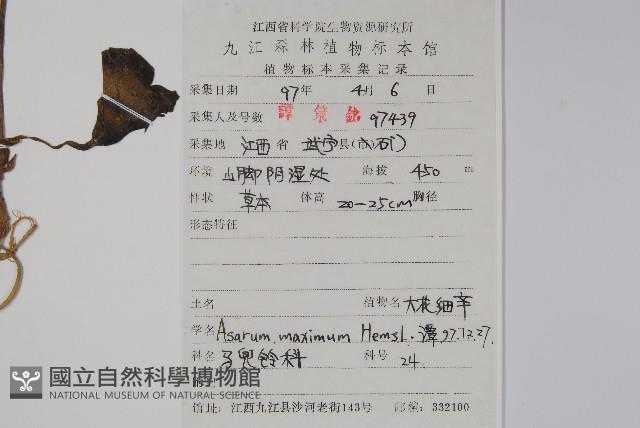 江西省科学院生物资源研究所
九江森林植物标本馆
植物标本采集记录
采集日期 97年 4月 6 日
采集人及号数 譚策銘 97439
采集地 江西 省 武宁 县(市)
环境 山脚阴湿处 海拔 450 m
性状 草本 体高 20—25cm 胸径
形态特征
土名 植物名 大花细辛
学名 Asarum maximum Hemsl. 譚 97.12.27.
科名 马兜铃科 科号 24.
國立自然科學博物館
NATIONAL MUSEUM OF NATURAL SCIENCE
馆址: 江西九江县沙河老街143号 邮编: 332100